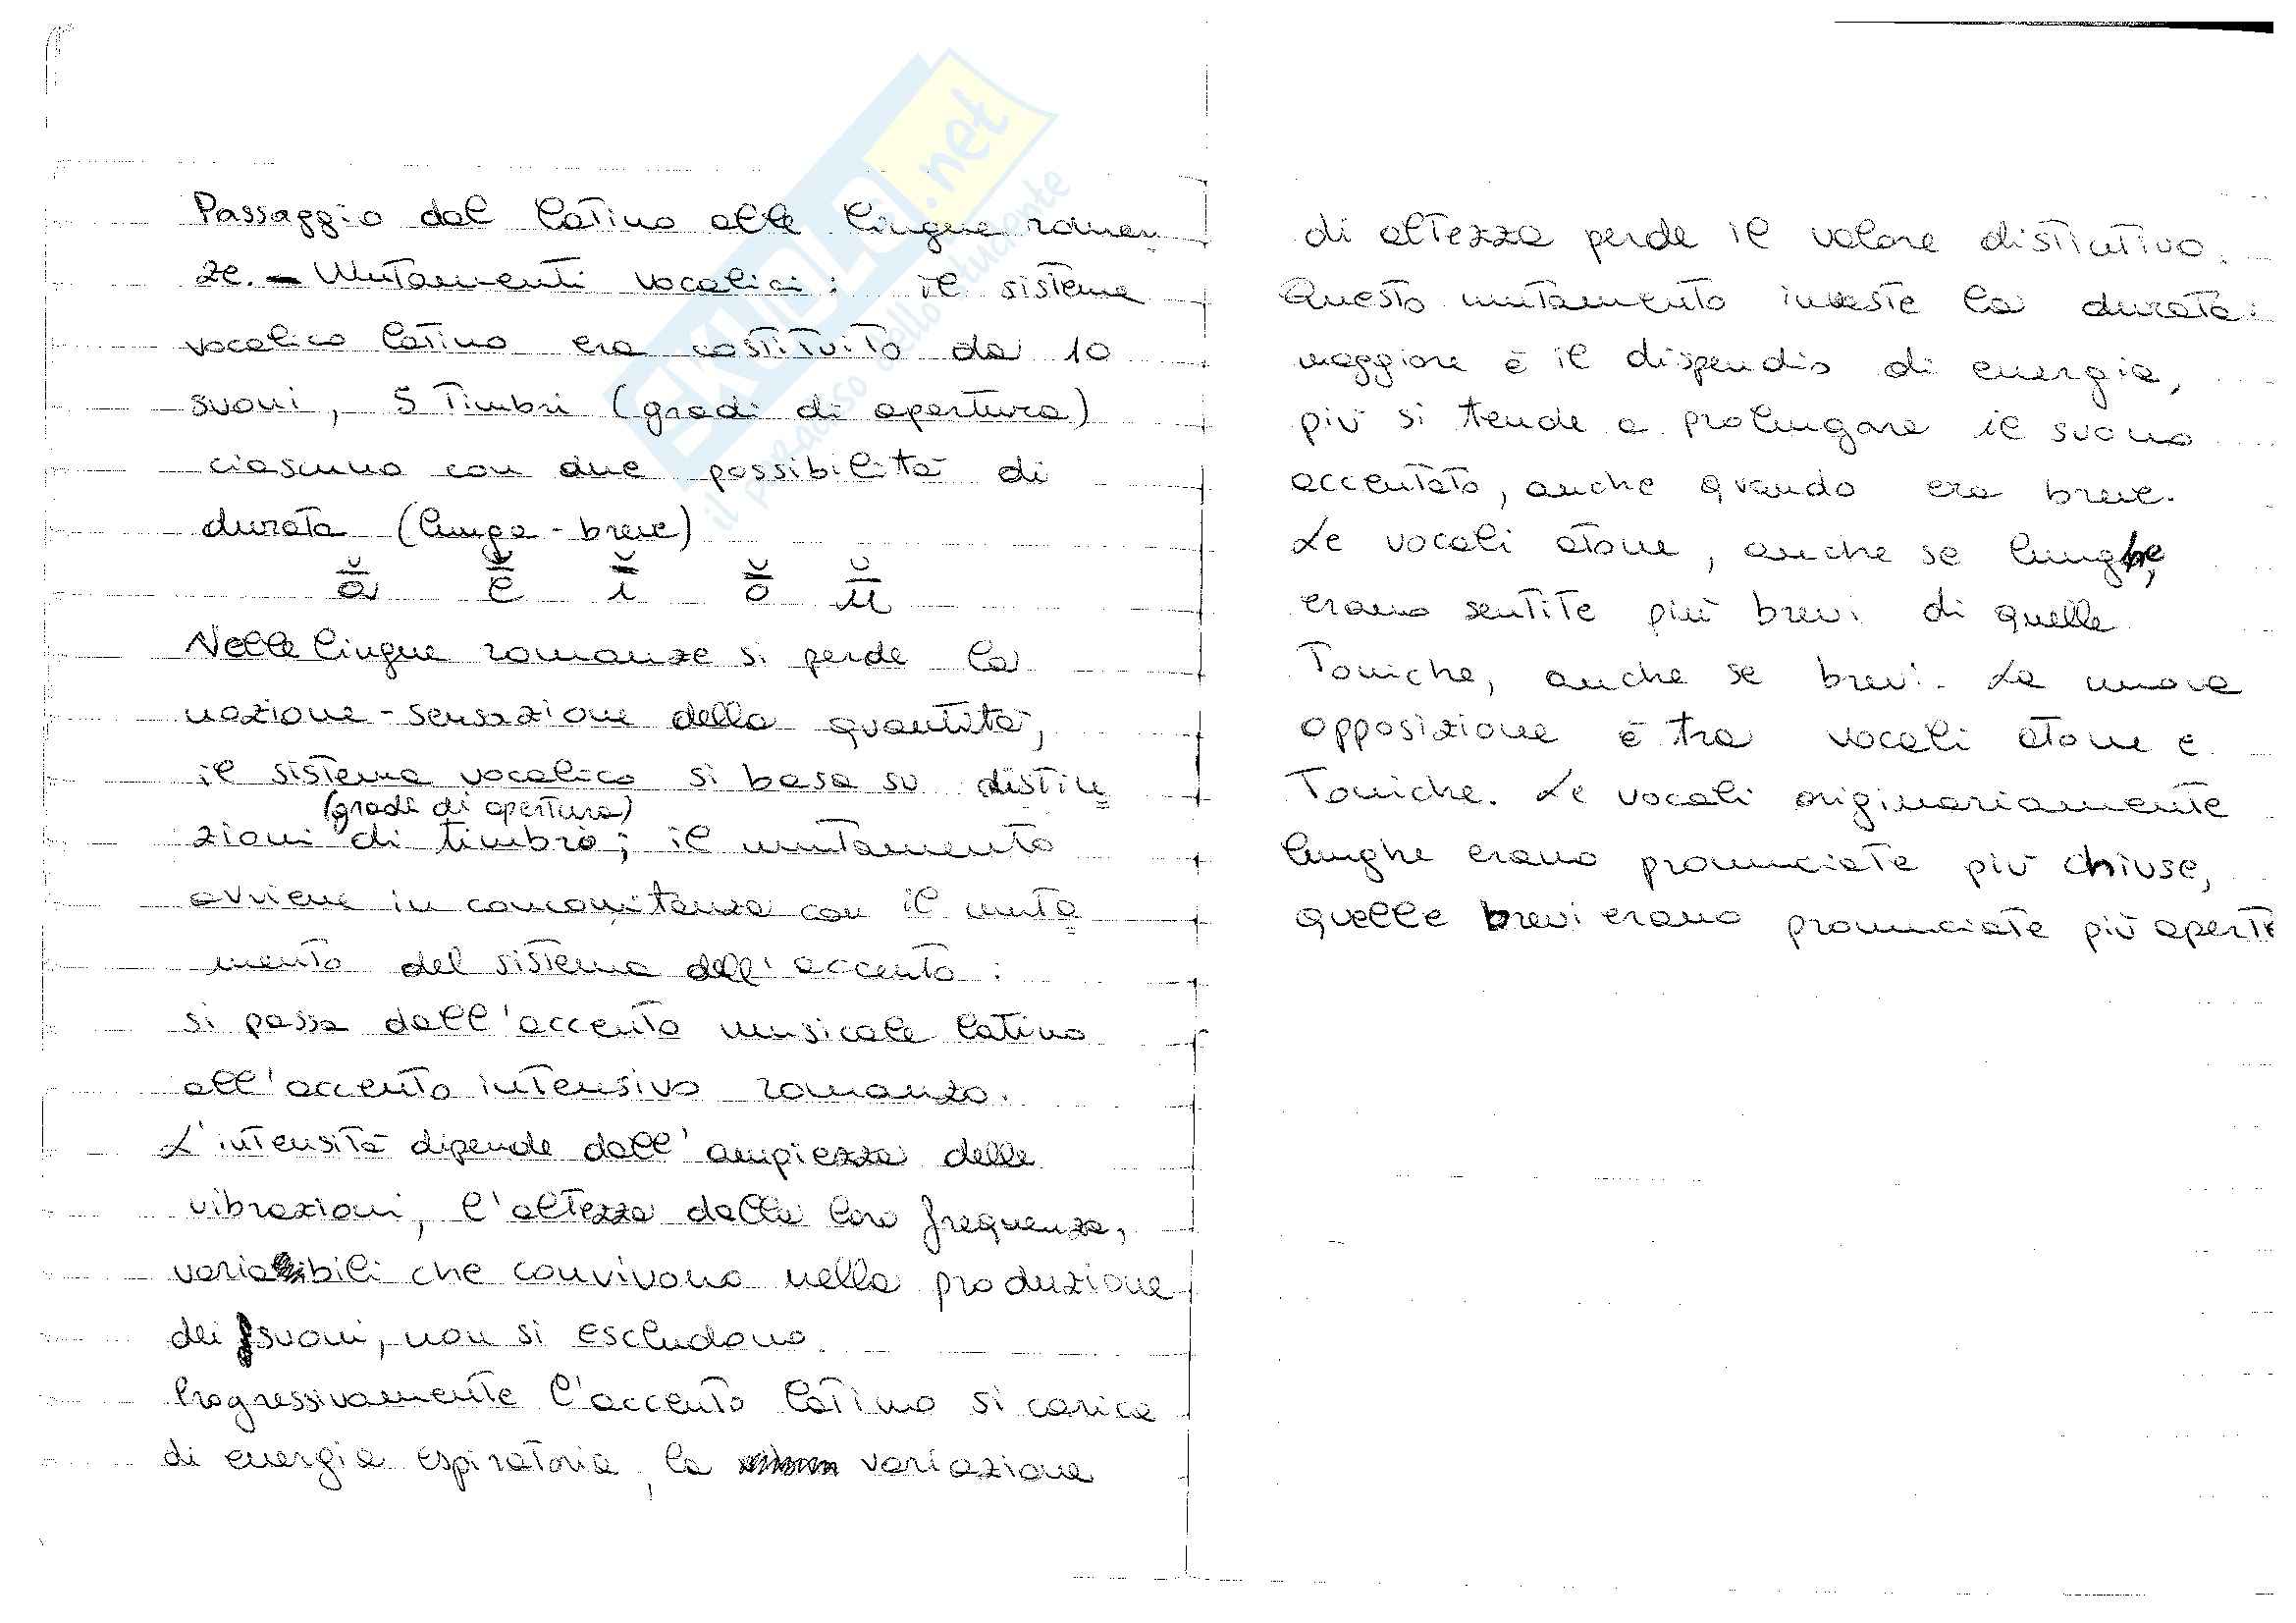 Passaggio dal latino alle lingue roman
ze. - Mutamenti vocalici: il sistema
vocalico latino era costituito da 10
suoni, 5 timbri (gradi di apertura)
ciascuno con due possibilità di
durata (lunga - breve)
ā̆ ē̆ ī̆ ō̆ ū̆
Nelle lingue romanze si perde la
nozione - sensazione della quantità,
il sistema vocalico si basa su distin
(gradi di apertura)
zioni di timbro; il mutamento
avviene in concomitanza con il muta
mento del sistema dell'accento:
si passa dall'accento musicale latino
all'accento intensivo romanzo.
L'intensità dipende dall'ampiezza delle
vibrazioni, l'altezza dalla loro frequenza,
variabili che convivono nella produzione
dei suoni, non si escludono.
Progressivamente l'accento latino si carica
di energia espiratoria, la variazione
di altezza perde il valore distintivo.
Questo mutamento investe la durata:
maggiore è il dispendio di energia,
più si tende a prolungare il suono
accentato, anche quando era breve.
Le vocali atone, anche se lunghe,
erano sentite più brevi di quelle
toniche, anche se brevi. La nuova
opposizione è tra vocali atone e
toniche. Le vocali originariamente
lunghe erano pronunciate più chiuse,
quelle brevi erano pronunciate più aperte
SKUOLA.net
il paradiso dello studente